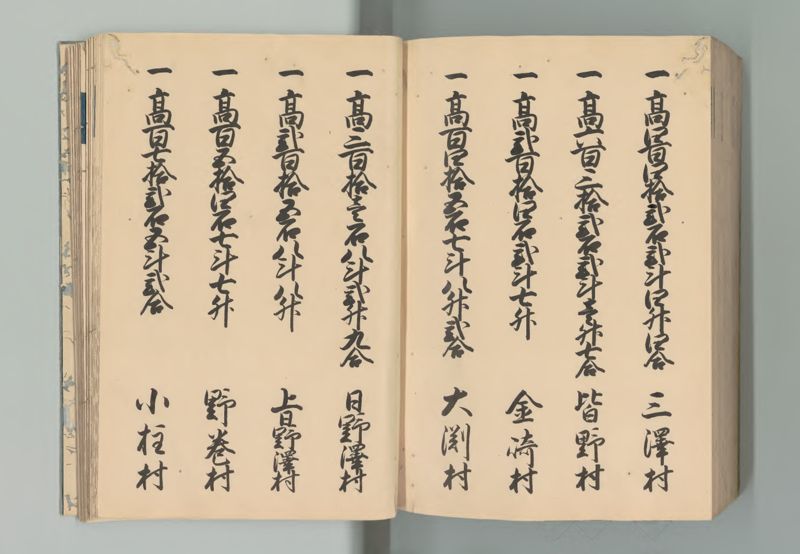 一髙四百四拾弐石弐斗四升四合 三澤村
一髙六百三拾弐石弐斗壱升七合 皆野村
一髙弐百拾四石弐斗七升 金崎村
一髙百四拾五石七斗八升弐合 大渕村
一髙三百拾壱石八斗弐升九合 日野澤村
一髙弐百拾五石八斗八升 上日野澤村
一髙百五拾四石七斗七升 野巻村
一髙百七拾弐石五斗弐合 小柱村